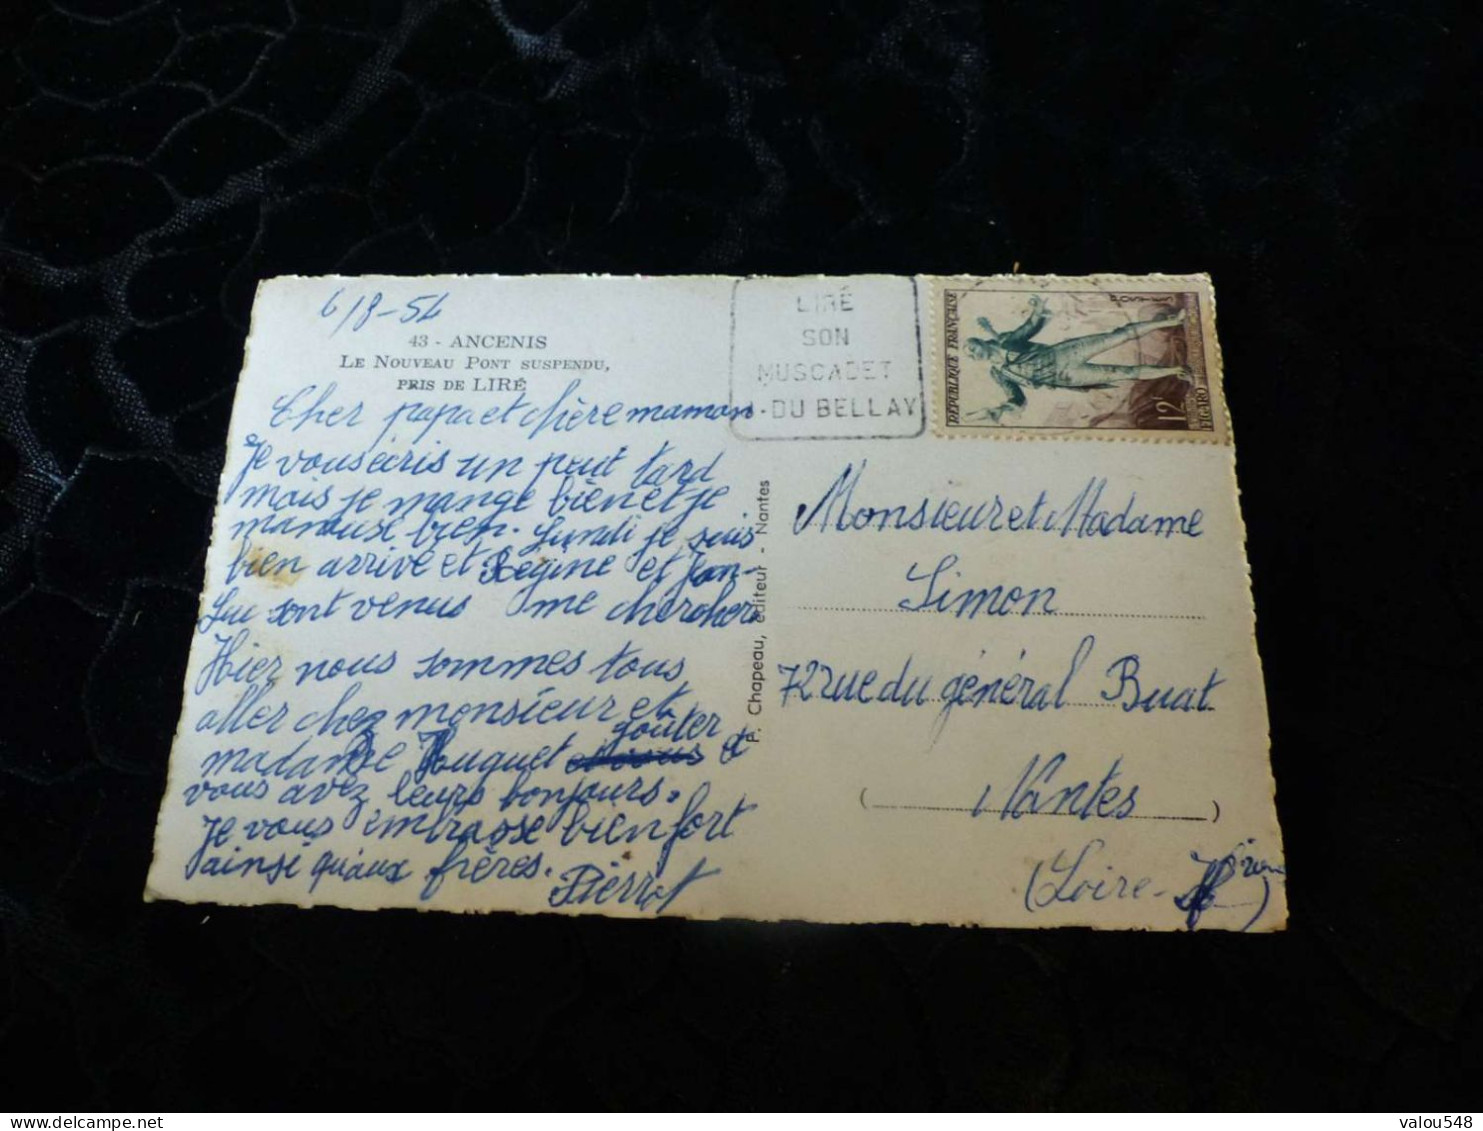 6/8-54
43 - ANCENIS
LE NOUVEAU PONT SUSPENDU,
PRIS DE LIRÉ
Cher papa et chère maman
Je vous écris un peut tard
mais je mange bien et je
m'amuse bien. Lundi je suis
bien arrivé et Régine et Jean-
Luc sont venus me chercher
Hier nous sommes tous
aller chez monsieur et
goûter
madame Houguet et
vous avez leurs bonjours.
Je vous embrasse bien fort
ainsi qu'aux frères.
Pierrot
P. Chapeau, éditeur - Nantes
LIRÉ
SON
MUSCADET
DU BELLAY
RÉPUBLIQUE FRANÇAISE
POSTES
12F
FIGARO
Monsieur et Madame
Simon
72 rue du général Buat
Nantes
(Loire-
valou548